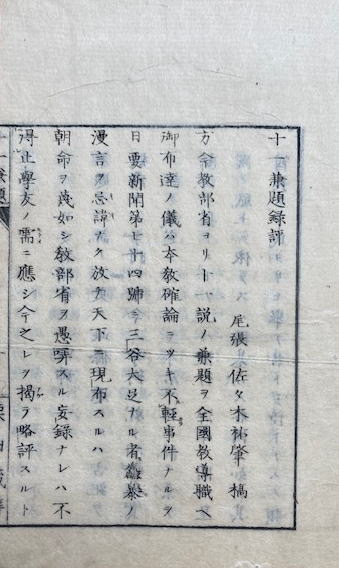 十一兼題録評
尾張 佐々木祐肇 稿
方今教部省ヨリ十一説ノ兼題ヲ全國教導職ヘ
御布達ノ儀ハ本教確論ニツキ不輕事件ナルヲ
日要新聞第七十四號ニ三谷大足ナル者麁暴ノ
漫言ヲ忌諱ナク放チ天下ニ現布スルハ
朝命ヲ蔑如シ教部省ヲ愚弄スル妄録ナレハ不
得止學友ノ需ニ應シ今之レヲ掲ケ略評スルト
十一兼題